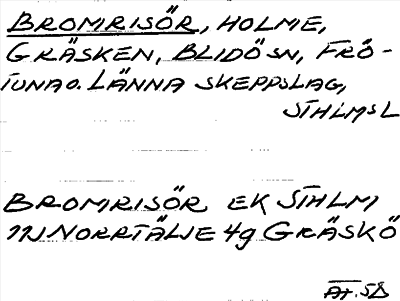 BROMRISÖR, HOLME,
GRÄSKEN, BLIDÖSN, FRÖ-
TUNA o. LÄNNA SKEPPSLAG,
STHLMSL
BROMRISÖR EK STHLM
11J NORRTÄLJE 4g GRÄSKÖ
AT.58